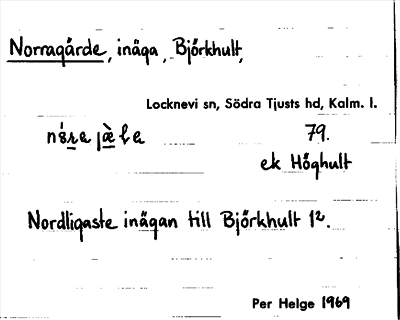 Norragärde, inäga, Björkhult,
Locknevi sn, Södra Tjusts hd, Kalm. l.
79.
ek Höghult
Nordligaste inägan till Björkhult 1².
Per Helge 1969